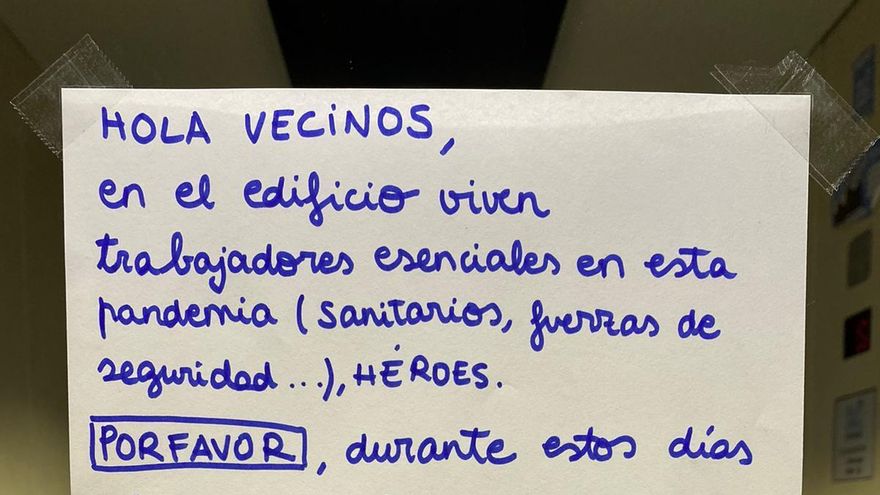 HOLA VECINOS,
en el edificio viven
trabajadores esenciales en esta
pandemia (sanitarios, fuerzas de
seguridad...), HÉROES.
PORFAVOR, durante estos días